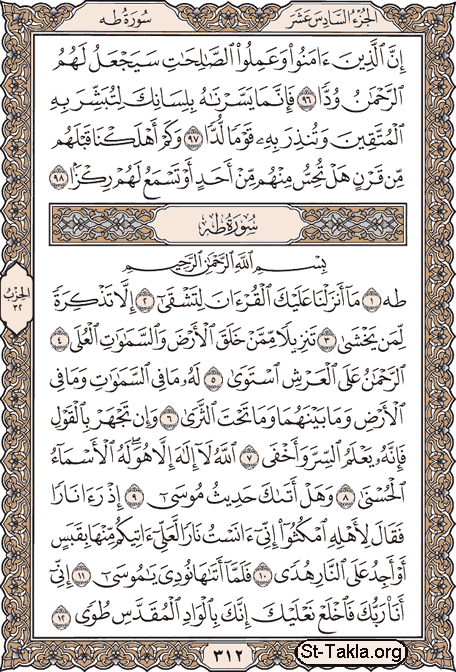 سورة طه الجزء السادس عشر
إِنَّ ٱلَّذِينَ ءَامَنُوا۟ وَعَمِلُوا۟ ٱلصَّٰلِحَٰتِ سَيَجْعَلُ لَهُمُ
ٱلرَّحْمَٰنُ وُدًّا ٩٦ فَإِنَّمَا يَسَّرْنَٰهُ بِلِسَانِكَ لِتُبَشِّرَ بِهِ
ٱلْمُتَّقِينَ وَتُنذِرَ بِهِۦ قَوْمًا لُّدًّا ٩٧ وَكَمْ أَهْلَكْنَا قَبْلَهُم
مِّن قَرْنٍ هَلْ تُحِسُّ مِنْهُم مِّنْ أَحَدٍ أَوْ تَسْمَعُ لَهُمْ رِكْزًۢا ٩٨
سُورَةُ طه
بِسْمِ ٱللَّهِ ٱلرَّحْمَٰنِ ٱلرَّحِيمِ
طه ١ مَآ أَنزَلْنَا عَلَيْكَ ٱلْقُرْءَانَ لِتَشْقَىٰٓ ٢ إِلَّا تَذْكِرَةً
لِّمَن يَخْشَىٰ ٣ تَنزِيلًا مِّمَّنْ خَلَقَ ٱلْأَرْضَ وَٱلسَّمَٰوَٰتِ ٱلْعُلَى ٤
ٱلرَّحْمَٰنُ عَلَى ٱلْعَرْشِ ٱسْتَوَىٰ ٥ لَهُۥ مَا فِى ٱلسَّمَٰوَٰتِ وَمَا فِى
ٱلْأَرْضِ وَمَا بَيْنَهُمَا وَمَا تَحْتَ ٱلثَّرَىٰ ٦ وَإِن تَجْهَرْ بِٱلْقَوْلِ
فَإِنَّهُۥ يَعْلَمُ ٱلسِّرَّ وَأَخْفَى ٧ ٱللَّهُ لَآ إِلَٰهَ إِلَّا هُوَ ۖ لَهُ ٱلْأَسْمَآءُ
ٱلْحُسْنَىٰ ٨ وَهَلْ أَتَىٰكَ حَدِيثُ مُوسَىٰٓ ٩ إِذْ رَءَا نَارًا
فَقَالَ لِأَهْلِهِ ٱمْكُثُوٓا۟ إِنِّىٓ ءَانَسْتُ نَارًا لَّعَلِّىٓ ءَاتِيكُم مِّنْهَا بِقَبَسٍ
أَوْ أَجِدُ عَلَى ٱلنَّارِ هُدًى ١٠ فَلَمَّآ أَتَىٰهَا نُودِىَ يَٰمُوسَىٰٓ ١١ إِنِّىٓ
أَنَا۠ رَبُّكَ فَٱخْلَعْ نَعْلَيْكَ ۖ إِنَّكَ بِٱلْوَادِ ٱلْمُقَدَّسِ طُوًى ١٢
الحزب
٣٢
٣١٢
St-Takla.org